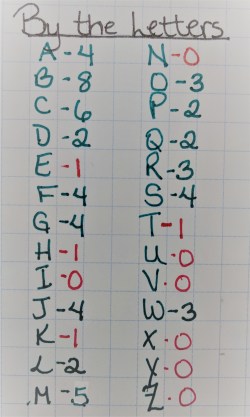 By the Letters
A-4
B-8
C-6
D-2
E-1
F-4
G-4
H-1
I-0
J-4
K-1
L-2
M-5
N-0
O-3
P-2
Q-2
R-3
S-4
T-1
U-0
V-0
W-3
X-0
Y-0
Z-0